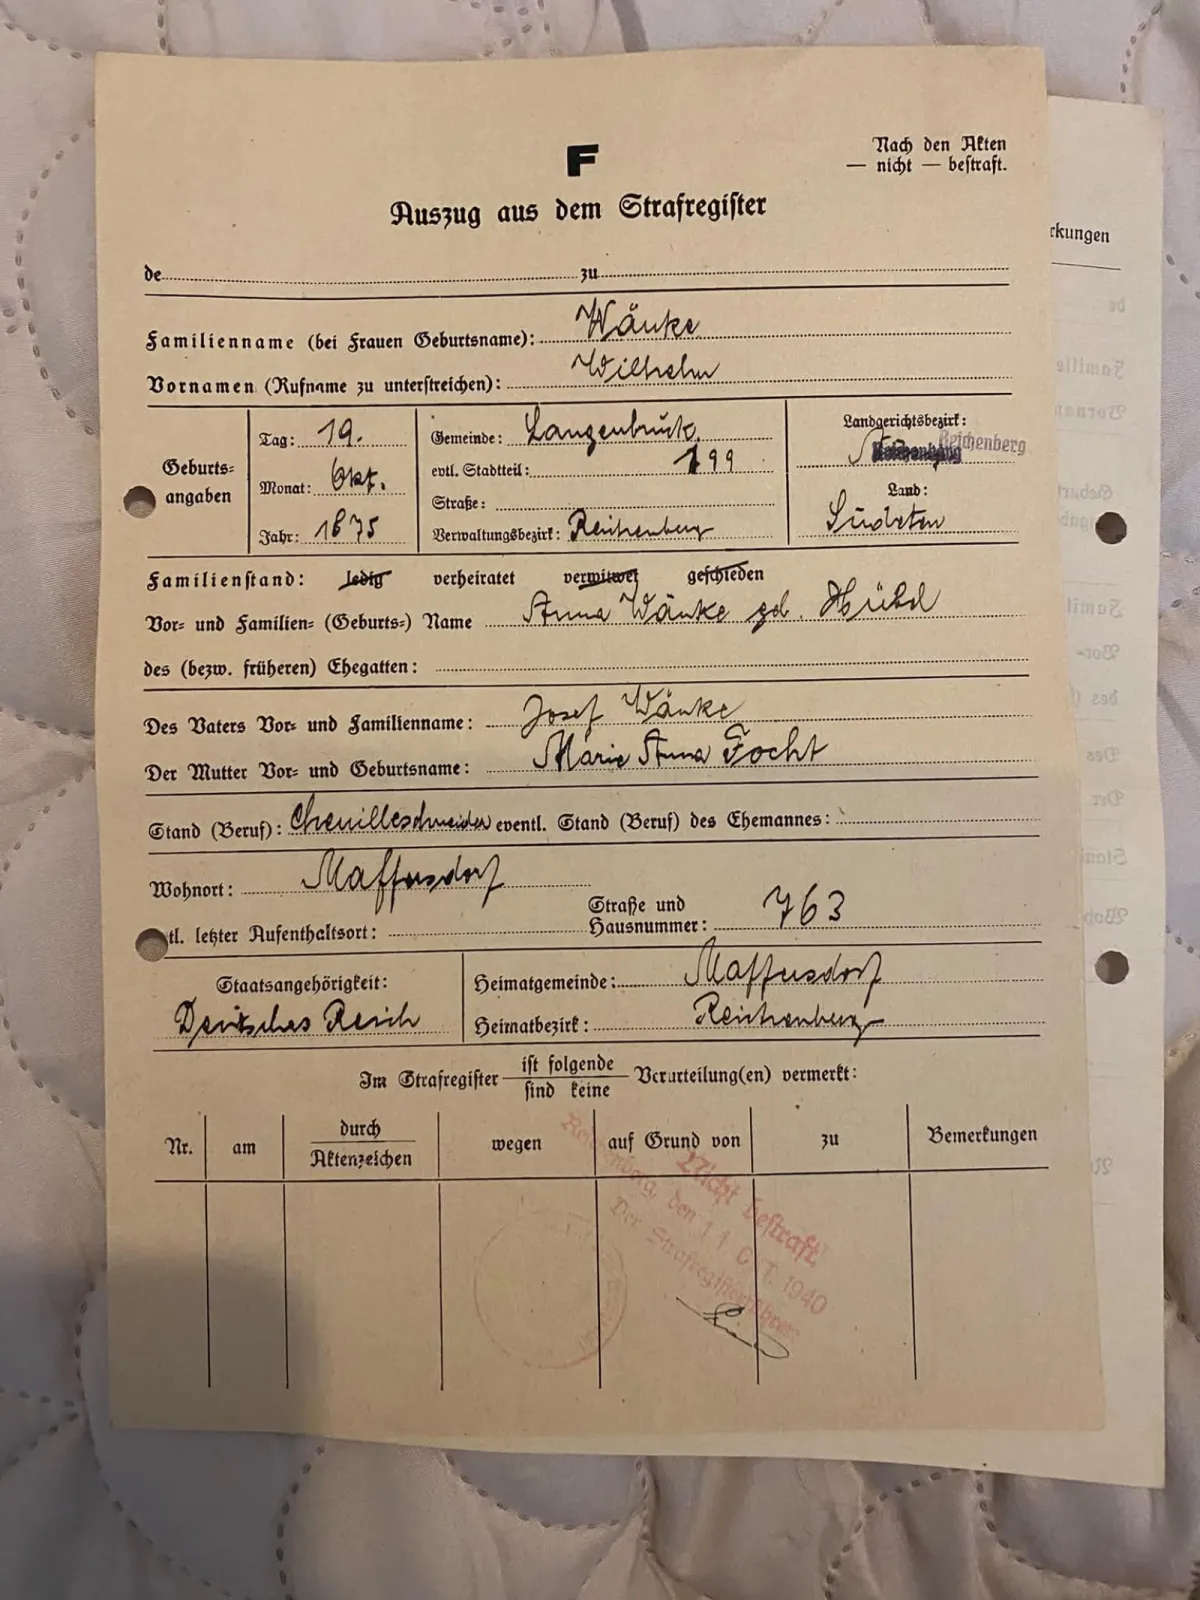 F
Nach den Akten
— nicht — bestraft.
Auszug aus dem Strafregister
rkungen
de zu
Familienname (bei Frauen Geburtsname): Wänke
Vornamen (Rufname zu unterstreichen): Wilhelm
Geburts=
angaben
Tag: 19.
Monat: Okt.
Jahr: 1875
Gemeinde: Langenbruck
evtl. Stadtteil: 199
Straße:
Verwaltungsbezirk: Reichenberg
Landgerichtsbezirk:
Reichenberg
Land:
Sudeten
Familienstand: ledig verheiratet verwitwet geschieden
Vor= und Familien= (Geburts=) Name Anna Wänke geb. Hübel
des (bezw. früheren) Ehegatten:
Des Vaters Vor= und Familienname: Josef Wänke
Der Mutter Vor= und Geburtsname: Marie Anna Focht
Stand (Beruf): Chenilleschneider eventl. Stand (Beruf) des Ehemannes:
Wohnort: Maffersdorf
Straße und
Hausnummer: 763
tl. letzter Aufenthaltsort:
Staatsangehörigkeit:
Deutsches Reich
Heimatgemeinde: Maffersdorf
Heimatbezirk: Reichenberg
Im Strafregister ist folgende
sind keine Verurteilung(en) vermerkt:
Nr. am durch
Aktenzeichen wegen auf Grund von zu Bemerkungen
Nicht bestraft
Reichenberg, den 11. OKT. 1940
Der Strafregisterführer